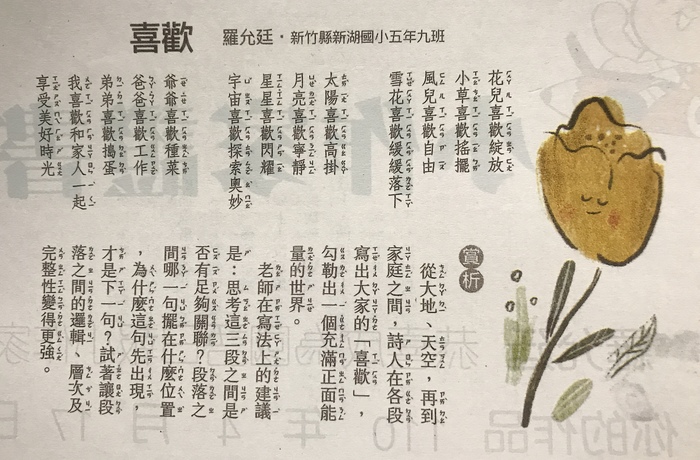 喜歡
羅允廷・新竹縣新湖國小五年九班
花兒喜歡綻放
小草喜歡搖擺
風兒喜歡自由
雪花喜歡緩緩落下
太陽喜歡高掛
月亮喜歡寧靜
星星喜歡閃耀
宇宙喜歡探索奧妙
爺爺喜歡種菜
爸爸喜歡工作
弟弟喜歡搗蛋
我喜歡和家人一起
享受美好時光
賞析
從大地、天空,再到
家庭之間,詩人在各段
寫出大家的「喜歡」,
勾勒出一個充滿正面能
量的世界。
老師在寫法上的建議
是:思考這三段之間是
否有足夠關聯?段落之
間哪一句擺在什麼位置
,為什麼這句先出現,
才是下一句?試著讓段
落之間的邏輯、層次及
完整性變得更強。